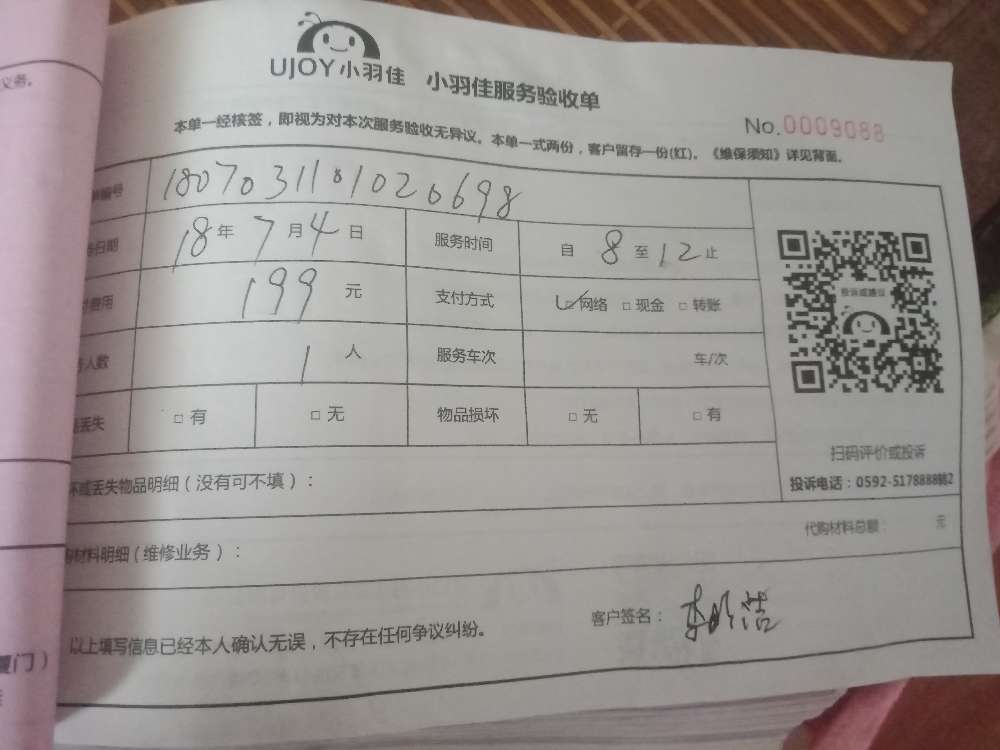 义务。
UJOY小羽佳 小羽佳服务验收单
No.0009088
本单一经核签，即视为对本次服务验收无异议。本单一式两份，客户留存一份(红)。《维保须知》详见背面。
编号 1807031101020698
日期 18年7月4日 服务时间 自8至12止
费用 199元 支付方式 ☑网络 □现金 □转账
人数 1人 服务车次 车/次
丢失 □有 □无 物品损坏 □无 □有
投诉或建议
扫码评价或投诉
投诉电话：0592-5178888转2
坏或丢失物品明细（没有可不填）：
材料明细（维修业务）： 代购材料总额： 元
以上填写信息已经本人确认无误，不存在任何争议纠纷。 客户签名：
厦门）